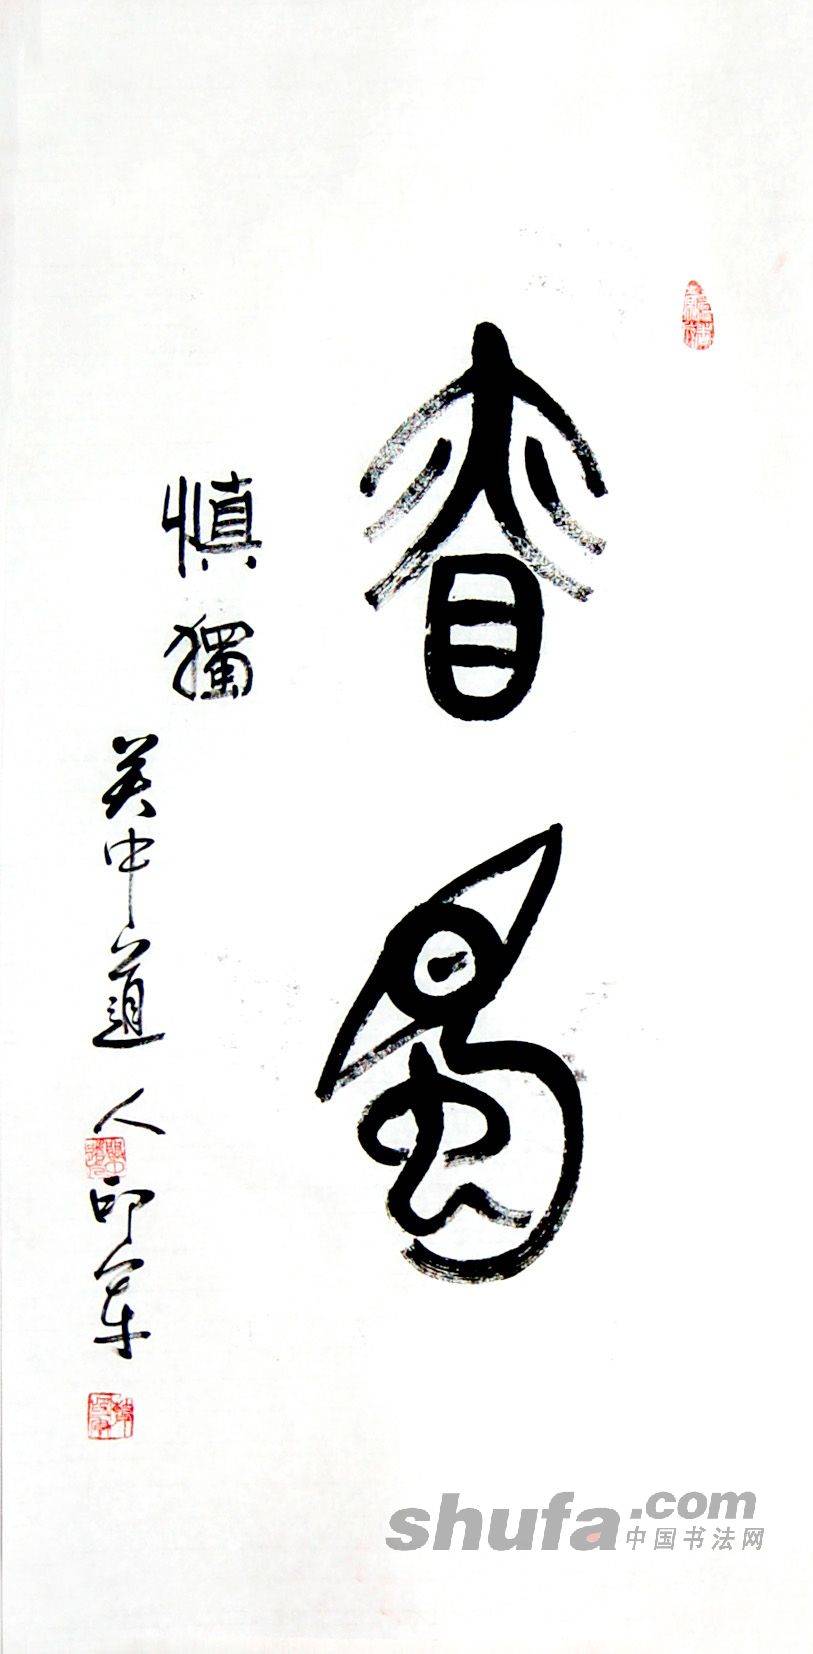 昚蜀
慎獨
关中道人印军
shufa.com
中国书法网